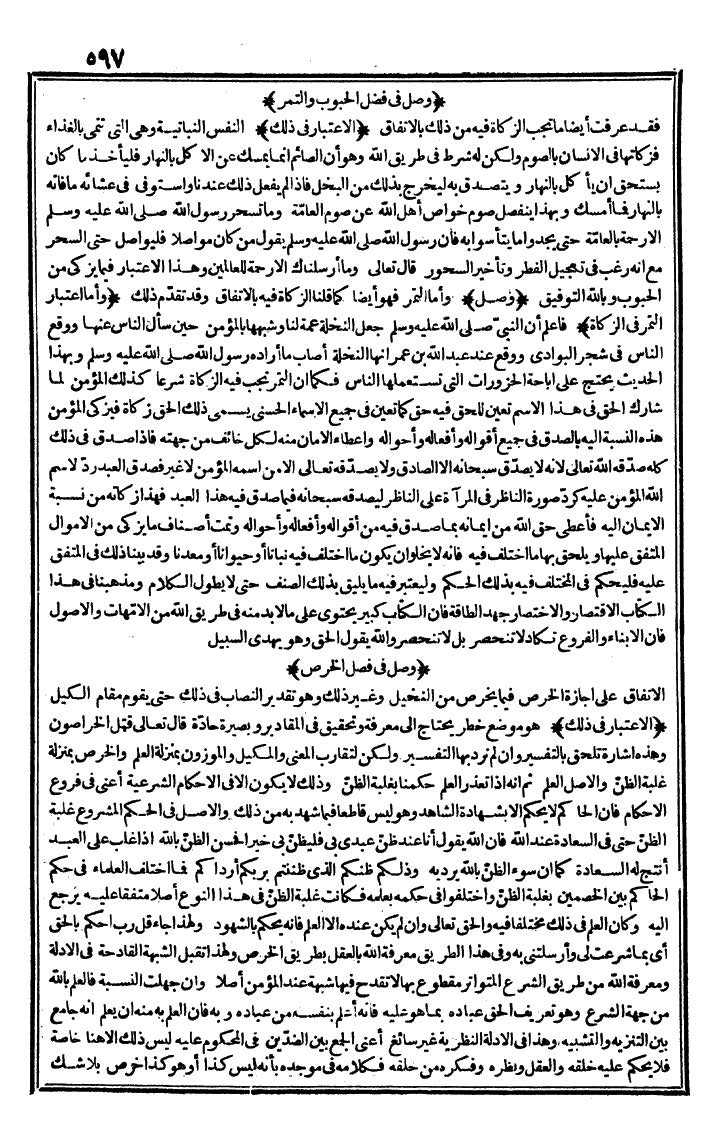 ٥٩٧
﴿وصل فى فضل الحبوب والتمر﴾
فقد عرفت أيضا ما تجب الزكاة فيه من ذلك بالاتفاق ﴿الاعتبار فى ذلك﴾ النفس النباتية وهى التى تنمى بالغذاء
فزكاتها فى الانسان بالصوم ولكن له شرط فى طريق الله وهو أن الصائم انما يمسك عن الاكل بالنهار فليأخذ ما كان
يستحق ان يأكل بالنهار ويتصدق به ليخرج بذلك من البخل فاذا لم يفعل ذلك عندنا واستوفى فى عشائه ما فاته
بالنهار فما أمسك وبهذا ينفصل صوم خواص أهل الله عن صوم العامّة وما تسحر رسول الله صلى الله عليه وسلم
الارحمة بالعامّة حتى يجد واما يتأسوا به فان رسول الله صلى الله عليه وسلم يقول من كان مواصلا فليواصل حتى السحر
مع انه رغب فى تعجيل الفطر وتأخير السحور قال تعالى وما أرسلناك الارحمة للعالمين وهذا الاعتبار فيما يزكى من
الحبوب وبالله التوفيق ﴿وصل﴾ وأما التمر فهو أيضا كما قلنا الزكاة فيه بالاتفاق وقد تقدّم ذلك ﴿وأما اعتبار
التمر فى الزكاة﴾ فاعلم أن النبىّ صلى الله عليه وسلم جعل النخلة عمة لنا وشبهها بالمؤمن حين سأل الناس عنها ووقع
الناس فى شجر البوادى ووقع عند عبد الله بن عمر انها النخلة أصاب ما أراده رسول الله صلى الله عليه وسلم وبهذا
الحديث يحتج على اباحة الحزورات التى تستعملها الناس فكما ان التمر تجب فيه الزكاة شرعا كذلك المؤمن لما
شارك الحق فى هذا الاسم تعين للحق فيه حق كما تعين فى جميع الاسماء الحسنى يسمى ذلك الحق زكاة فيزكى المؤمن
هذه النسبة اليه بالصدق فى جميع أقواله وأفعاله وأحواله واعطاء الامان منه لكل خائف من جهته فاذا صدق فى ذلك
كله صدّقه الله تعالى لانه لا يصدّق سبحانه الا الصادق ولا يصدّقه تعالى الا من اسمه المؤمن لا غير فصدق العبد ردّ لاسم
الله المؤمن عليه كردّ صورة الناظر فى المرآة على الناظر ليصدقه سبحانه فيما صدق فيه هذا العبد فهذا زكاته من نسبة
الايمان اليه فأعطى حق الله من ايمانه بما صدق فيه من أقواله وأفعاله وأحواله وتمت أصناف ما يزكى من الاموال
المتفق عليها ويلحق بها ما اختلف فيه فانه لا يخلو ان يكون ما اختلف فيه نباتا أو حيوانا أو معدنا وقد بينا ذلك فى المتفق
عليه فليحكم فى المختلف فيه بذلك الحكم وليعتبر فيه ما يليق بذلك الصنف حتى لا يطول الكلام ومذهبنا فى هذا
الكتاب الاقتصار والاختصار جهد الطاقة فان الكتاب كبير يحتوى على ما لابد منه فى طريق الله من الامّهات والاصول
فان الابناء والفروع تكاد لا تنحصر بل لا تنحصر والله يقول الحق وهو يهدى السبيل
﴿وصل فى فصل الخرص﴾
الاتفاق على اجازة الخرص فيما يخرص من النخيل وغير ذلك وهو تقدير النصاب فى ذلك حتى يقوم مقام الكيل
﴿الاعتبار فى ذلك﴾ هو موضع خطر يحتاج الى معرفة وتحقيق فى المقادير وبصيرة حادّة قال تعالى قتل الخراصون
وهذه اشارة تلحق بالتفسير وان لم نرد بها التفسير ولكن لتقارب المعنى والمكيل والموزون بمنزلة العلم والخرص بمنزلة
غلبة الظنّ والاصل العلم ثم انه اذا تعذر العلم حكمنا بغلبة الظنّ وذلك لا يكون الا فى الاحكام الشرعية أعنى فى فروع
الاحكام فان الحاكم لا يحكم الا بشهادة الشاهد وهو ليس قاطعا فيما شهد به من ذلك والاصل فى الحكم المشروع غلبة
الظنّ حتى فى السعادة عند الله فان الله يقول أنا عند ظنّ عبدى بى فليظنّ بى خيرا فحسن الظنّ بالله اذا غلب على العبد
أنتج له السعادة كما ان سوء الظنّ بالله يرديه وذلكم ظنكم الذى ظننتم بربكم أرداكم فما اختلف العلماء فى حكم
الحاكم بين الخصمين بغلبة الظنّ واختلفوا فى حكمه بعلمه فكانت غلبة الظنّ فى هذا النوع أصلا متفقا عليه يرجع
اليه وكان العلم فى ذلك مختلفا فيه والحق تعالى وان لم يكن عنده الا العلم فانه يحكم بالشهود ولهذا جاء قل رب احكم بالحق
أى بما شرعت لى وأرسلتنى به وفى هذا الطريق معرفة الله بالعقل بطريق الخرص ولهذا تقبل الشبهة القادحة فى الادلة
ومعرفة الله من طريق الشرع المتواتر مقطوع بها لا تقدح فيها شبهة عند المؤمن أصلا وان جهلت النسبة فالعلم بالله
من جهة الشرع وهو تعريف الحق عباده بما هو عليه فانه أعلم بنفسه من عباده وبه فان العلم به منه ان يعلم انه جامع
بين التنزيه والتشبيه وهذا فى الادلة النظرية غير سائغ أعنى الجمع بين الضدّين فى المحكوم عليه ليس ذلك الا هنا خاصة
فلا يحكم عليه خلقه والعقل ونظره وفكره من خلقه فكلامه فى موجده بأنه ليس كذا أو هو كذا خرص بلا شك